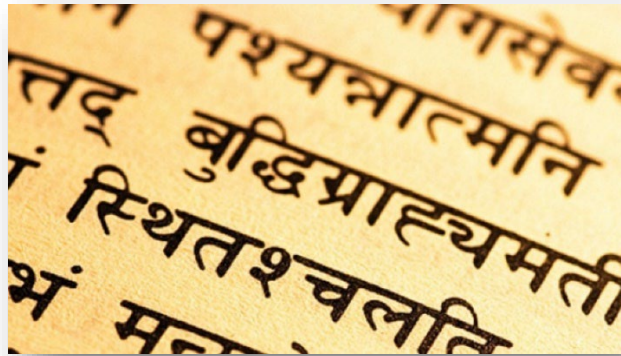 गसेव
पश्यन्नात्मनि
त्तद् बुद्धिग्राह्यमती
स्थितश्चलति
भं